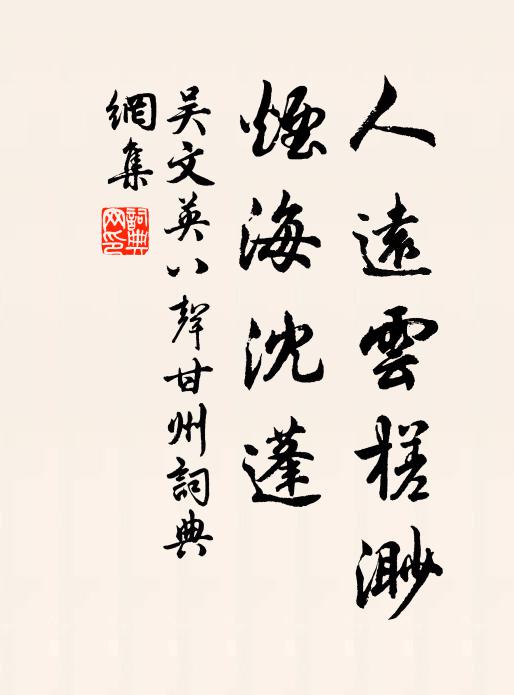 人遠雲槎渺
煙海沈蓬
吳文英八聲甘州詞典
網集
詞典網印